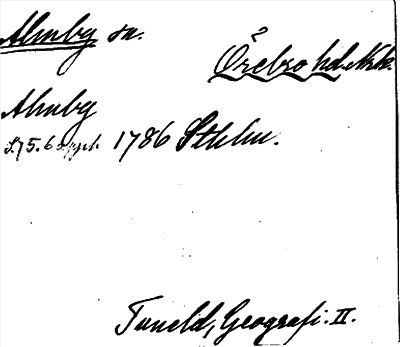 Almby sn.
Örebro hd. Nrk.
Almby
S. 75. 6 uppl. 1786 Sthlm.
Tuneld, Geografi. II.